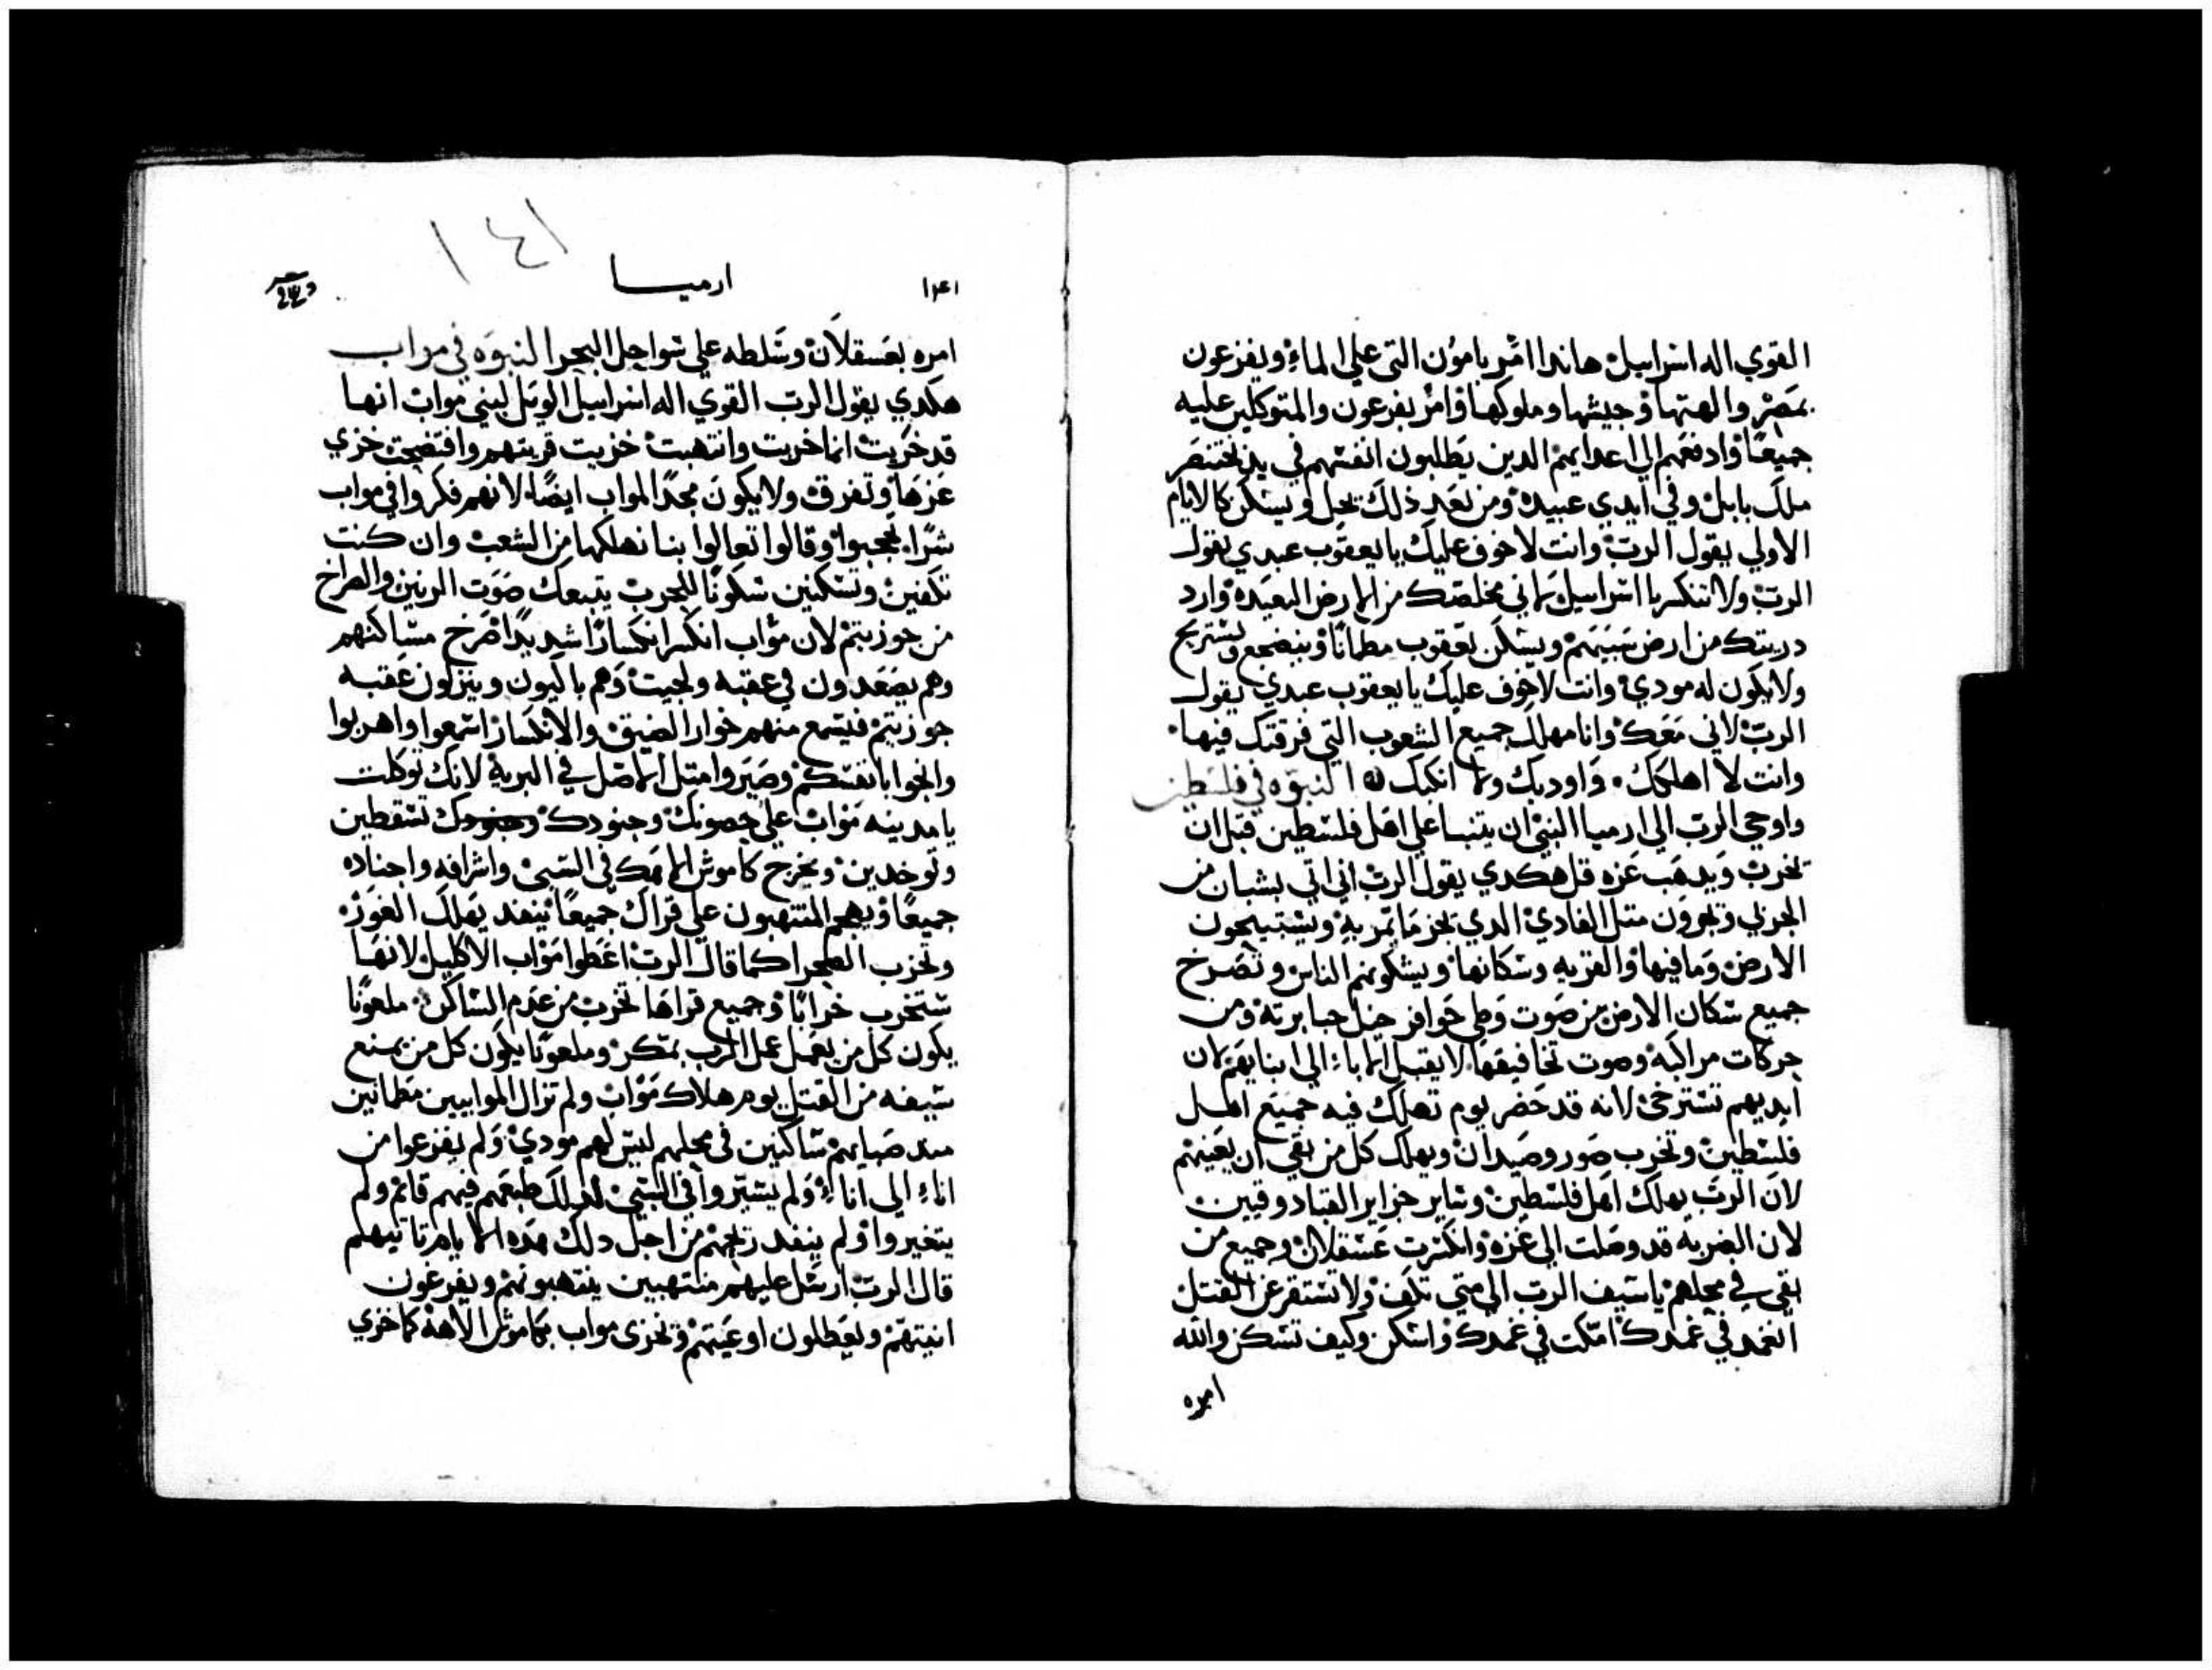 القوي اله اسراييل هاندا امر بامون التي علي الماء ويفزعون
بمصر والهتها وجيشها وملوكها وامر بفرعون والمتوكلين عليه
جميعا وادفعهم الي اعدايهم الدين يطلبون انفسهم في يد بختنصر
ملك بابل وفي ايدي عبيده ومن بعد ذلك تحل وتسكن كالايام
الاولي يقول الرب وانت لا خوف عليك يا يعقوب عبدي يقول
الرب ولا تنكسر يا اسراييل لاني مخلصك من الارض البعيده وارد
دريتك من ارض سبيهم ويسكن يعقوب مطمانا وينضجع ويستريح
ولا يكون له مودي وانت لا خوف عليك يا يعقوب عبدي يقول
الرب لاني معك وانا مهلك جميع الشعوب التي فرقتك فيها
وانت لا اهلكك واودبك ولا انكبك النبوه في فلسطين
واوحي الرب الي ارميا النبي ان يتنبا علي اهل فلسطين قبل ان
تخرب ويدهب عزه قل هكدي يقول الرب اني اتي بشبان من
الجربي ويجرون متل الوادي الدي يجر ما يمر به ويستبيحون
الارض وما فيها والقريه وسكانها ويشكونهم الناس وتصرخ
جميع سكان الارض من صوت وطي حوافر خيل جبابرته ومن
حركات مراكبه وصوت تخافيقها لا يقبل الاباء الي ابنايهم لان
ايديهم تسترخي لانه قد حضر يوم تهلك فيه جميع اهل
فلسطين وتخرب صور وصيدان ويهلك كل من بقي ان يعينهم
لان الرب يهلك اهل فلسطين وساير جزاير القبادوقيين
لان الضربه قد وصلت الي غزه وانكسرت عسقلان وجميع من
بقي في محلهم يا سيف الرب الي متي تكف ولا تستقر عن القتل
انغمد في غمدك امكت في غمدك واسكن وكيف تسكن والله
امره
١٤١
١٤١ ارميا
امره بعسقلان وسلطه علي سواحل البحر النبوه في مواب
هكدي يقول الرب القوي اله اسراييل الويل لبني مواب انها
قد خربت انما خربت وانتهبت خزيت قريتهم وافتضحت خزي
عزها وتفرق ولا يكون مجدا لمواب ايضا لانهم فكروا في مواب
شرا وقالوا تعالوا بنا نهلكها من الشعب وان كنت
تكفين وتسكنين سكونا للحرب يتبعك صوت الرنين والصراخ
من حوزيتم لان مواب انكسر انكسارا شديدا صرخ مساكنهم
وهم يصعدون في عقبه ولحيت وهم باكيون وينزلون عقبه
حوزيتم فيسمع منهم خوار الضيق والانكسار اسمعوا واهربوا
وانجوا بانفسكم وصيروا متل الاصل في البريه لانك توكلت
يا مدينه مواب علي حصونك وجنودك تسقطين
وتوخدين ويخرج كاموش الاهك في السبي واشرافه واجناده
جميعا ويهم المنتهبون علي قراك جميعا ينفد يهلك الغور
وتخرب الصحرا كما قال الرب اعطوا مواب الاكليل لانها
ستخرب خرابا وجميع قراها تخرب من عدم الساكن ملعونا
يكون كل من يعمل عمل الرب بمكر وملعونا يكون كل من يمنع
سيفه من القتل يوم هلاك مواب ولم تزال الموابيين مطمانين
مند صبايهم ساكنين في محلهم ليس لهم مودي ولم يفزعوا من
اناء الي اناء ولم يسيروا في السبي لدلك طبعهم فيهم قايم ولم
يتغيروا ولم ينفد ريحهم من اجل دلك هده الايام تاتيهم
قال الرب ارسل عليهم منتهبين ينتهبونهم ويفرغون
انيتهم ويعطلون اوعيتهم وتخزي مواب بكاموش الاهه كما خزي